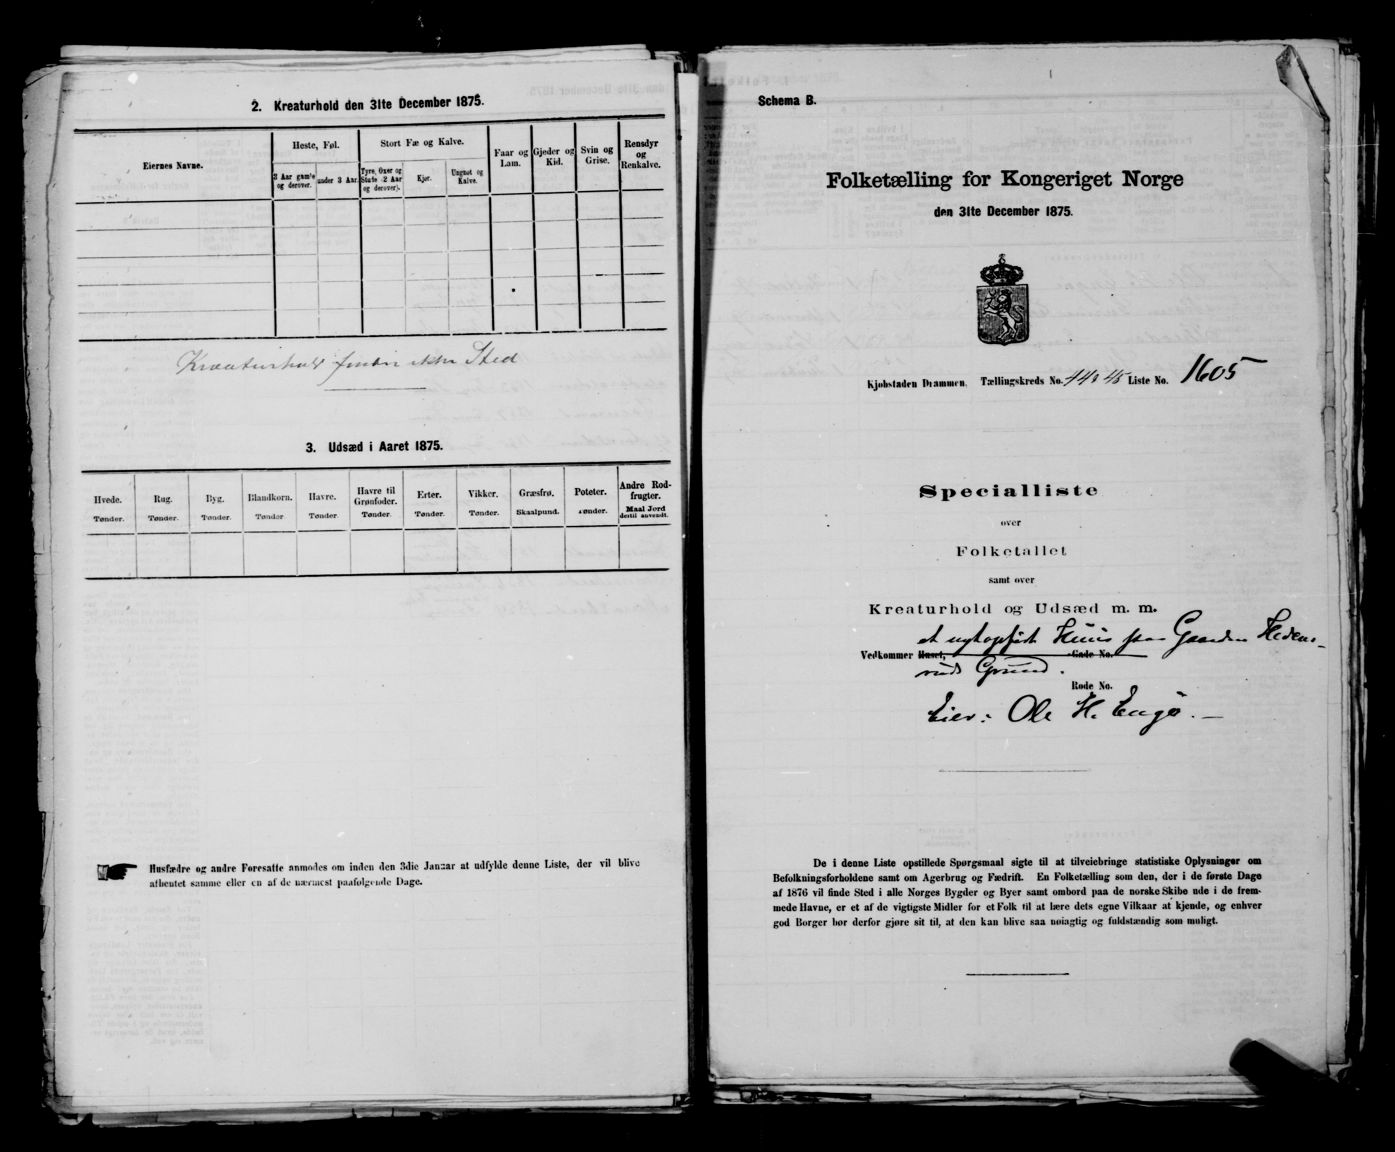 2. Kreaturhold den 31te December 1875.
Eiernes Navne.
Heste, Føl.
3 Aar gamle og derover.
under 3 Aar.
Stort Fæ og Kalve.
Tyre, Oxer og Stude (2 Aar og derover).
Kjør.
Ungnøt og Kalve.
Faar og Lam.
Gjeder og Kid.
Svin og Grise.
Rensdyr og Renkalve.
Kreaturhold finder ikke Sted
3. Udsæd i Aaret 1875.
Hvede. Tønder.
Rug. Tønder.
Byg. Tønder.
Blandkorn. Tønder
Havre. Tønder.
Havre til Grønfoder. Tønder.
Erter. Tønder.
Vikker. Tønder.
Græsfrø. Skaalpund.
Poteter. Tønder.
Andre Rodfrugter. Maal Jord dertil anvendt.
Husfædre og andre Foresatte anmodes om inden den 3die Januar at udfylde denne Liste, der vil blive
afhentet samme eller en af de nærmest paafølgende Dage.
Schema B.
Folketælling for Kongeriget Norge
den 31te December 1875.
Kjøbstaden Drammen. Tællingskreds No. 44 & 45 Liste No. 1605
Specialliste
over
Folketallet
samt over
Kreaturhold og Udsæd m. m.
et nyt opført Huus paa Gaarden Hedens-
Vedkommer Huset, Gade No.
ruds Grund.
Rode No.
Eier: Ole H. Engø.
De i denne Liste opstillede Spørgsmaal sigte til at tilveiebringe statistiske Oplysninger om
Befolkningsforholdene samt om Agerbrug og Fædrift. En Folketælling som den, der i de første Dage
af 1876 vil finde Sted i alle Norges Bygder og Byer samt ombord paa de norske Skibe ude i de frem-
mede Havne, er et af de vigtigste Midler for et Folk til at lære dets egne Vilkaar at kjende, og enhver
god Borger bør derfor gjøre sit til, at den kan blive saa nøiagtig og fuldstændig som muligt.